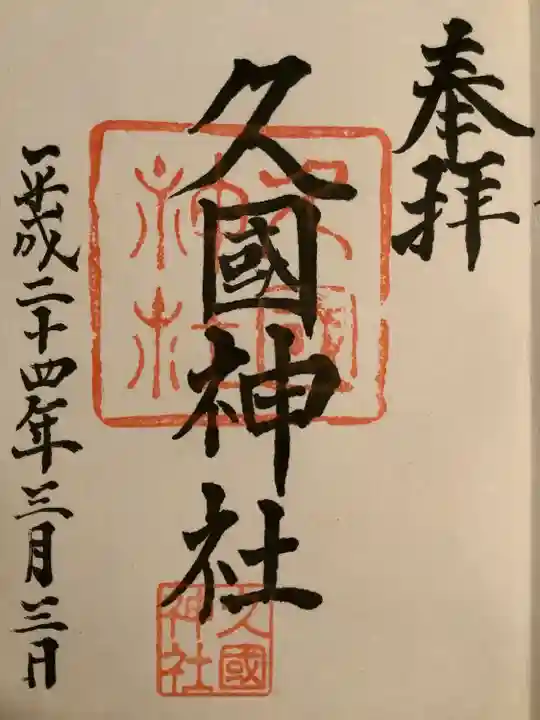 奉拝
久國神社
久國神社
久國神社
平成二十四年三月三日